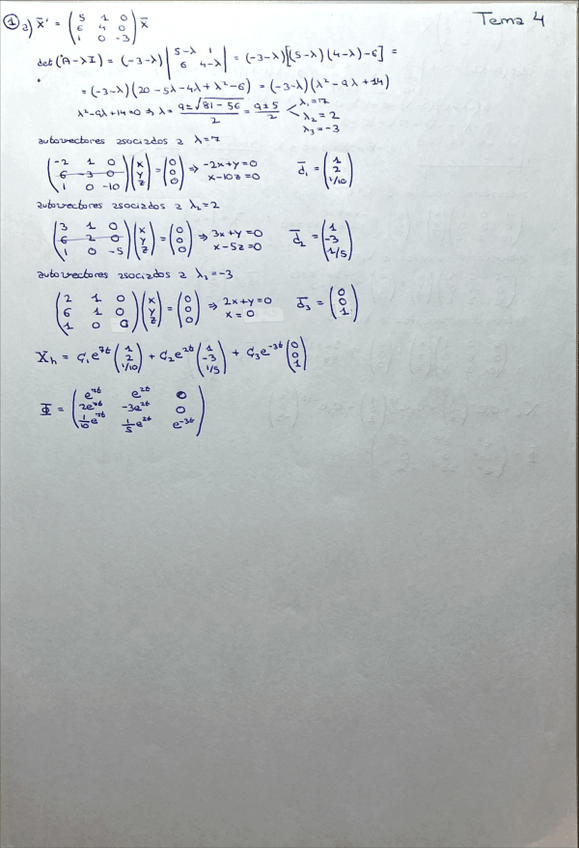 Tema 4
① a) x̄' = (5 1 0; 6 4 0; 1 0 -3) x̄
det (A-λI) = (-3-λ) |5-λ 1; 6 4-λ| = (-3-λ)[(5-λ)(4-λ)-6] =
= (-3-λ)(20-5λ-4λ+λ²-6) = (-3-λ)(λ²-9λ+14)
λ²-9λ+14=0 ⇒ λ = (9±√(81-56))/2 = (9±5)/2 < λ₁=7 λ₂=2 λ₃=-3
autovectores asociados a λ=7
(-2 1 0; 6 -3 0; 1 0 -10)(x; y; z) = (0; 0; 0) ⇒ -2x+y=0 x-10z=0 d̄₁ = (1; 2; 1/10)
autovectores asociados a λ₂=2
(3 1 0; 6 2 0; 1 0 -5)(x; y; z) = (0; 0; 0) ⇒ 3x+y=0 x-5z=0 d̄₂ = (1; -3; 1/5)
autovectores asociados a λ₃=-3
(2 1 0; 6 1 0; 1 0 0)(x; y; z) = (0; 0; 0) ⇒ 2x+y=0 x=0 d̄₃ = (0; 0; 1)
X̄h = C₁e^7t (1; 2; 1/10) + C₂e^2t (1; -3; 1/5) + C₃e^-3t (0; 0; 1)
Φ̄ = (e^7t e^2t 0; 2e^7t -3e^2t 0; 1/10 e^7t 1/5 e^2t e^-3t)